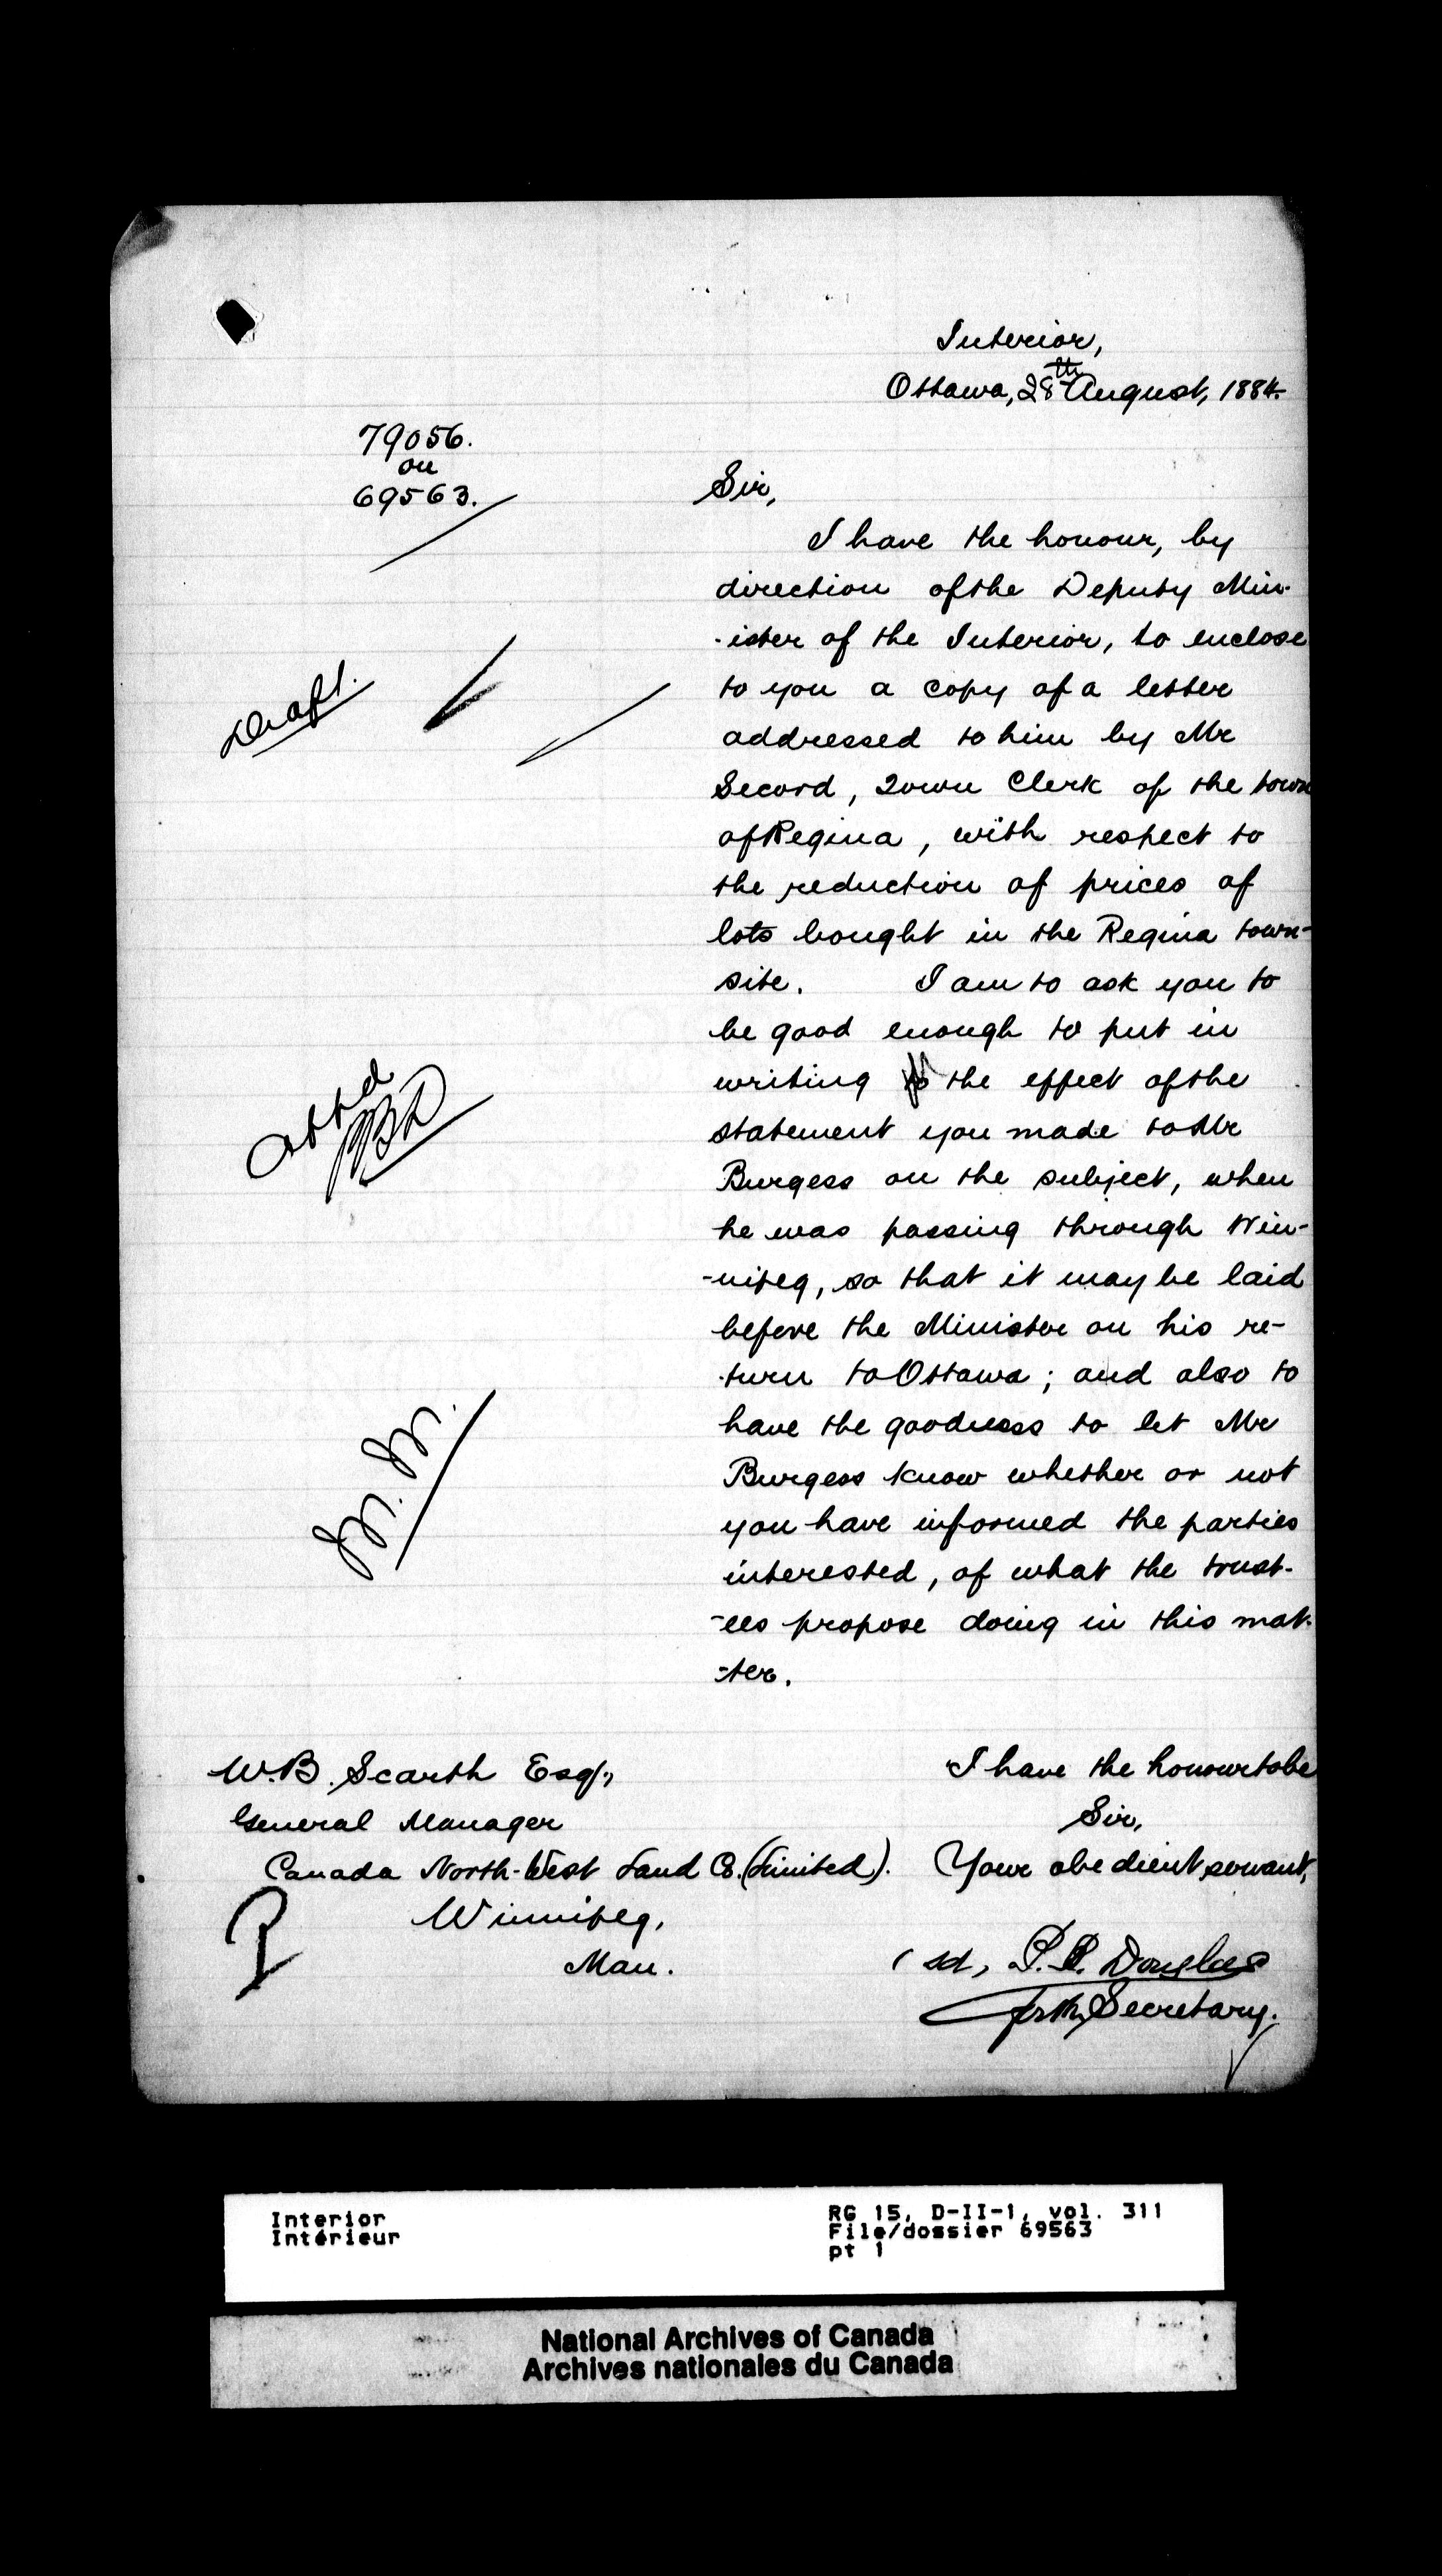 Interior,
Ottawa, 28th August, 1884.
79056.
on
69563.
Sir,
I have the honour, by
direction of the Deputy Min-
-ister of the Interior, to enclose
to you a copy of a letter
Draft.
addressed to him by Mr
Secord, Town Clerk of the town
of Regina, with respect to
the reduction of prices of
lots bought in the Regina town-
site. I am to ask you to
be good enough to put in
writing the effect of the
statement you made to Mr
Burgess on the subject, when
he was passing through Win-
-nipeg, so that it may be laid
before the Minister on his re-
-turn to Ottawa; and also to
have the goodness to let Mr
Burgess know whether or not
you have informed the parties
interested, of what the trust-
-ees propose doing in this mat-
-ter.
W.B. Scarth Esq.,
General Manager
Canada North-West Land Co. (Limited).
Winnipeg,
Man.
I have the honour to be
Sir,
Your obedient servant,
(sd, P.B. Douglas
for the Secretary.
Interior
Intérieur
RG 15, D-II-1, vol. 311
File/dossier 69563
pt 1
National Archives of Canada
Archives nationales du Canada